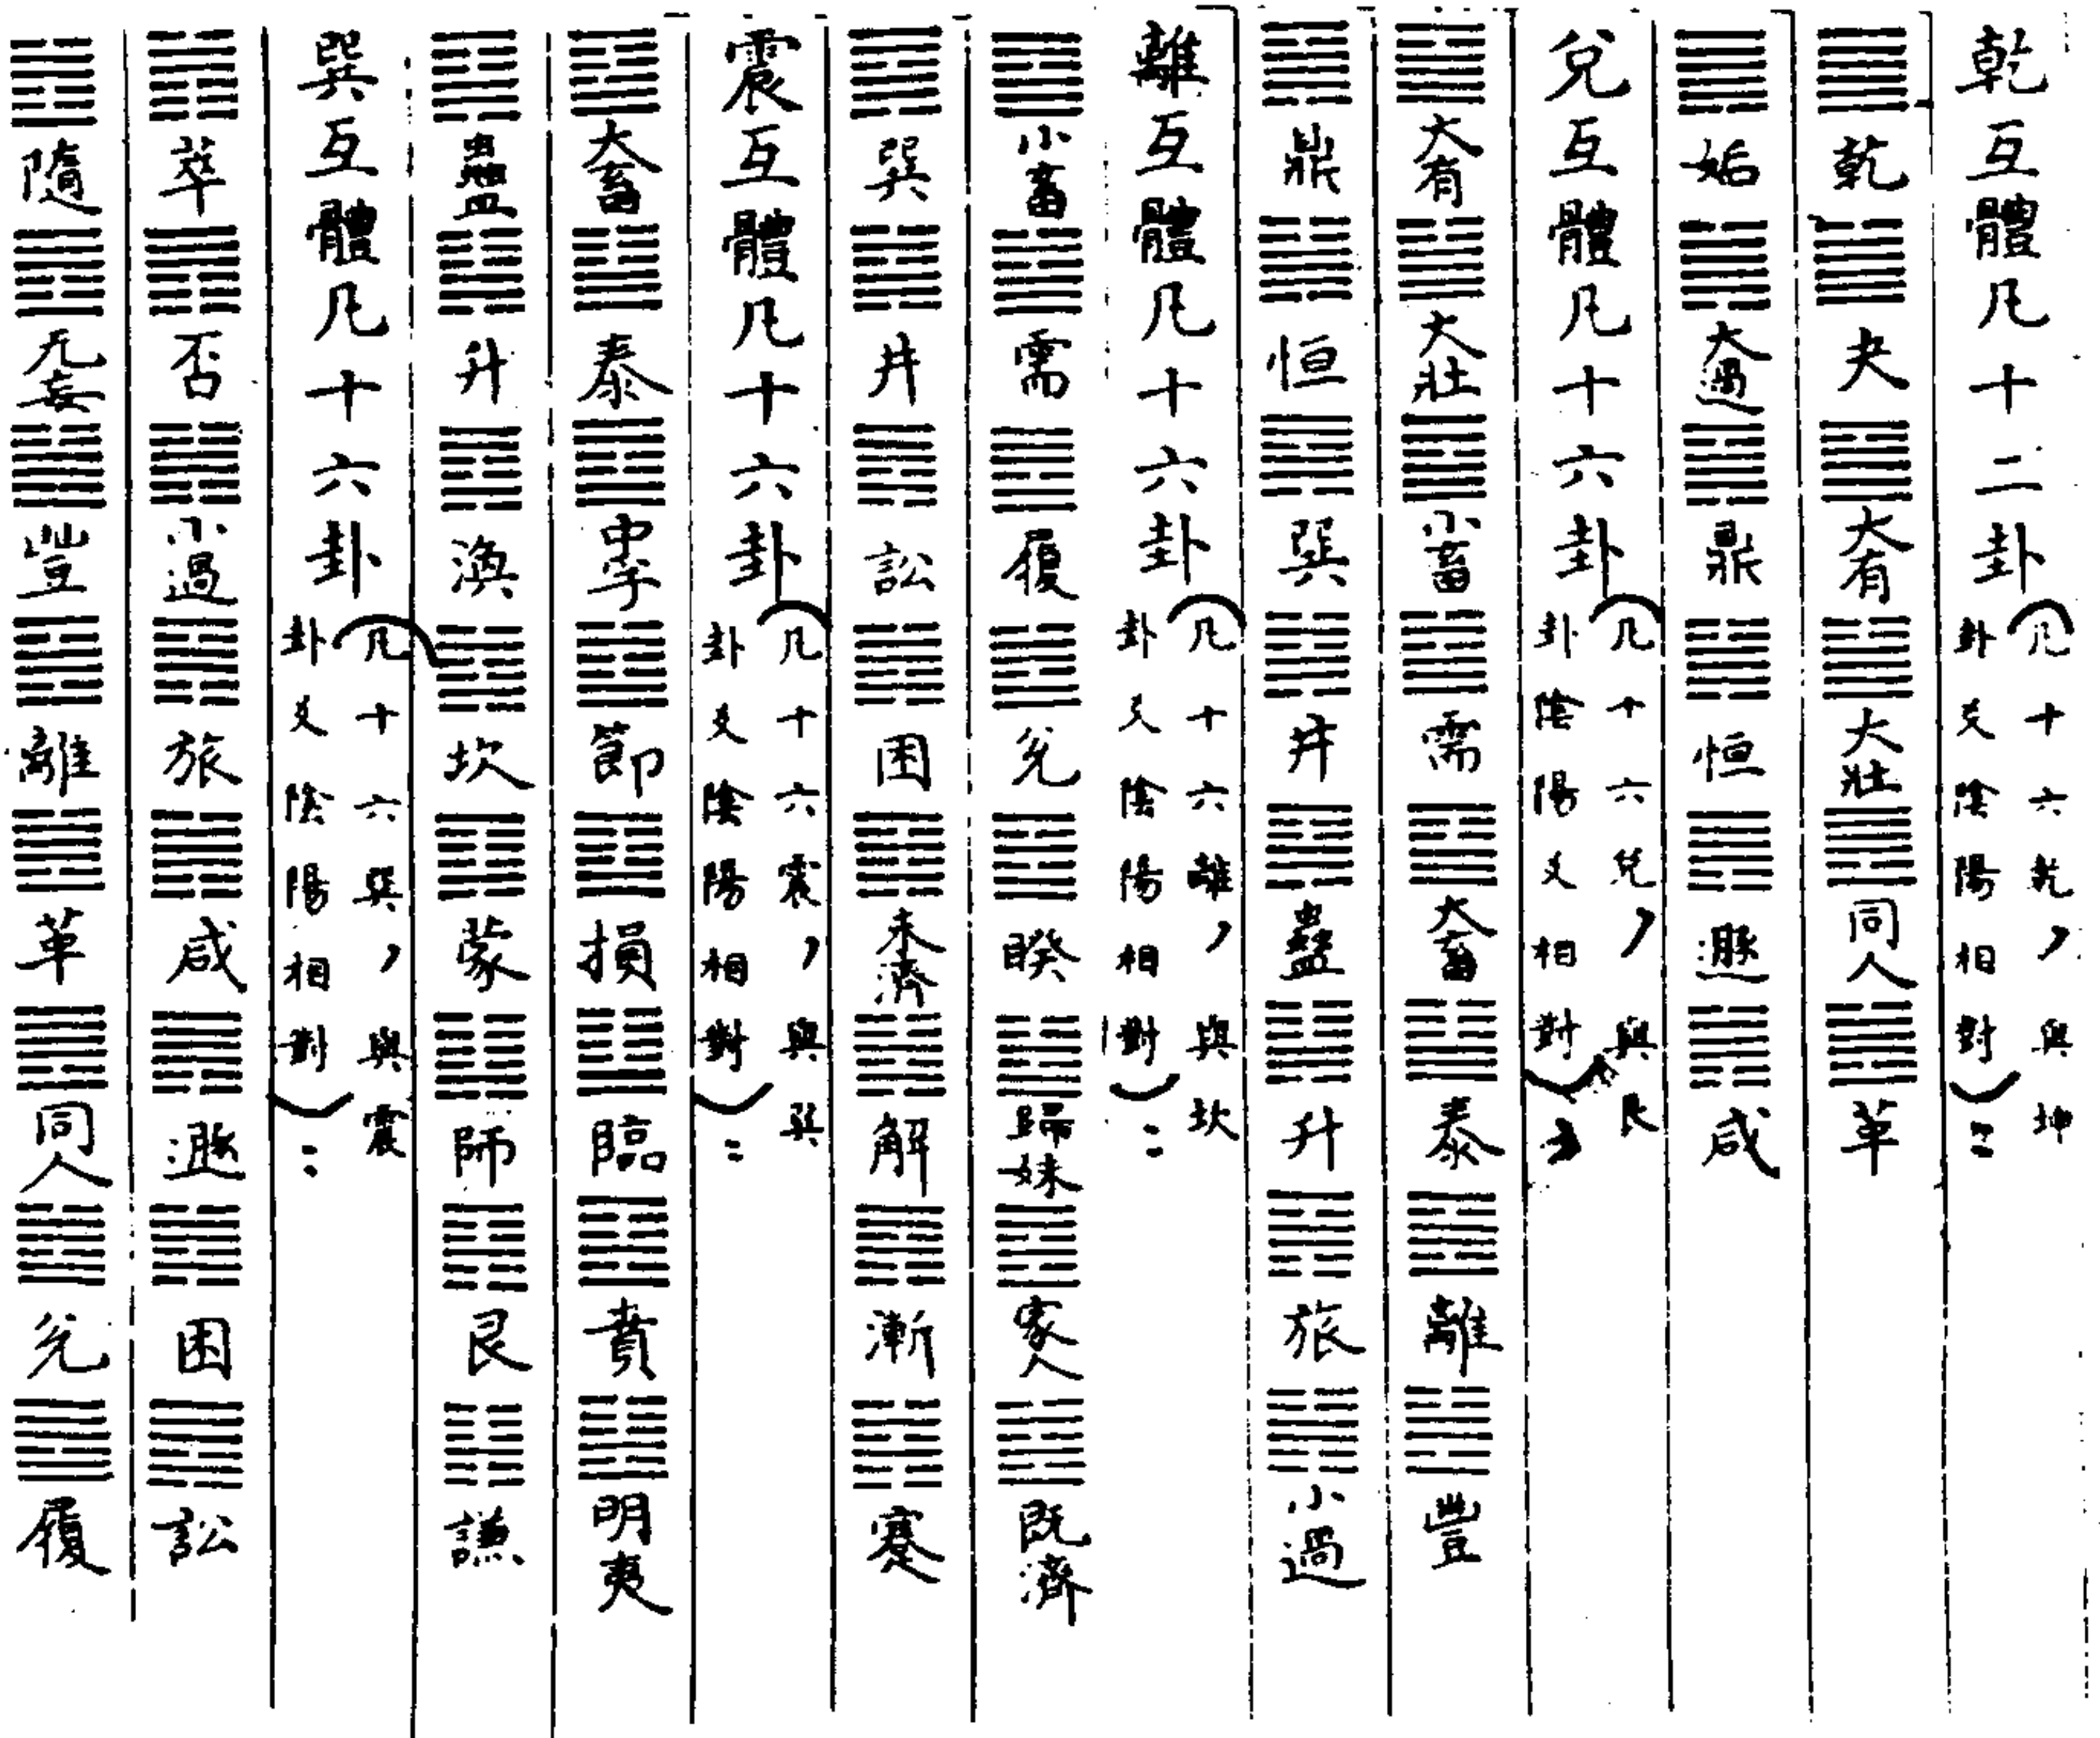 乾互體凡十二卦（凡十六乾，與坤卦爻陰陽相對）：
䷀乾䷪夬䷍大有䷡大壯䷌同人䷰革
䷫姤䷛大過䷱鼎䷟恒䷠遯䷞咸
兌互體凡十六卦（凡十六兌，與艮卦陰陽爻相對）：
䷍大有䷡大壯䷈小畜䷄需䷙大畜䷊泰䷝離䷶豐
䷱鼎䷟恒䷸巽䷯井䷑蠱䷭升䷷旅䷽小過
離互體凡十六卦（凡十六離，與坎卦爻陰陽相對）：
䷈小畜䷄需䷉履䷹兌䷥睽䷵歸妹䷤家人䷾既濟
䷸巽䷯井䷅訟䷮困䷿未濟䷧解䷴漸䷦蹇
震互體凡十六卦（凡十六震，與巽卦爻陰陽相對）：
䷙大畜䷊泰䷼中孚䷻節䷨損䷒臨䷕賁䷣明夷
䷑蠱䷭升䷺渙䷜坎䷃蒙䷆師䷳艮䷎謙
巽互體凡十六卦（凡十六巽，與震卦爻陰陽相對）：
䷬萃䷋否䷽小過䷷旅䷞咸䷠遯䷮困䷅訟
䷐隨䷘无妄䷶豐䷝離䷰革䷌同人䷹兌䷉履